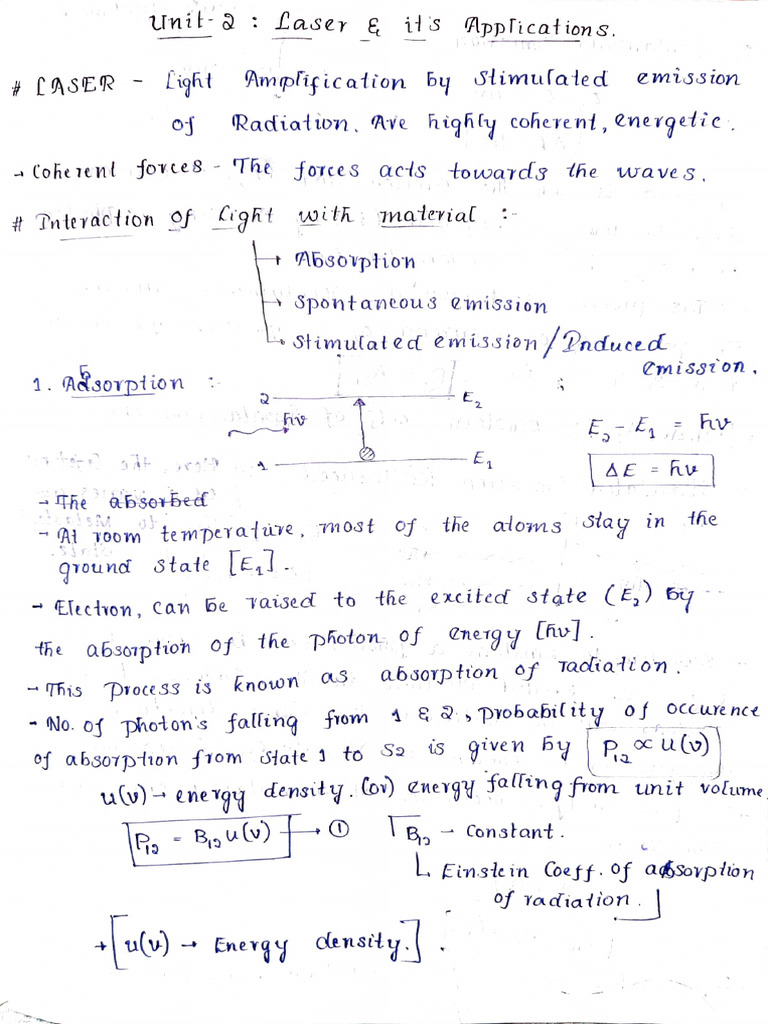 Unit-2 : Laser & it's Applications.
# LASER - Light Amplification by Stimulated emission
of Radiation. Are highly coherent, energetic.
→ Coherent forces - The forces acts towards the waves.
# Interaction of Light with material :-
→ Absorption
→ Spontaneous emission
→ Stimulated emission / Induced
emission.
1. Absorption :-
2 E₂
ħν
1 E₁
E₂ - E₁ = ħν
ΔE = ħν
→ The absorbed
→ At room temperature, most of the atoms stay in the
ground state [E₁].
→ Electron, can be raised to the excited state (E₂) by
the absorption of the photon of energy [ħν].
→ This process is known as absorption of radiation.
→ No. of photon's falling from 1 & 2, probability of occurence
of absorption from state 1 to S2 is given by P₁₂ ∝ u(ν)
u(ν) → energy density. (or) energy falling from unit volume.
P₁₂ = B₁₂ u(ν) → ①
B₁₂ - Constant.
Einstein Coeff. of absorption
of radiation.
→ [u(ν) → Energy density.] .